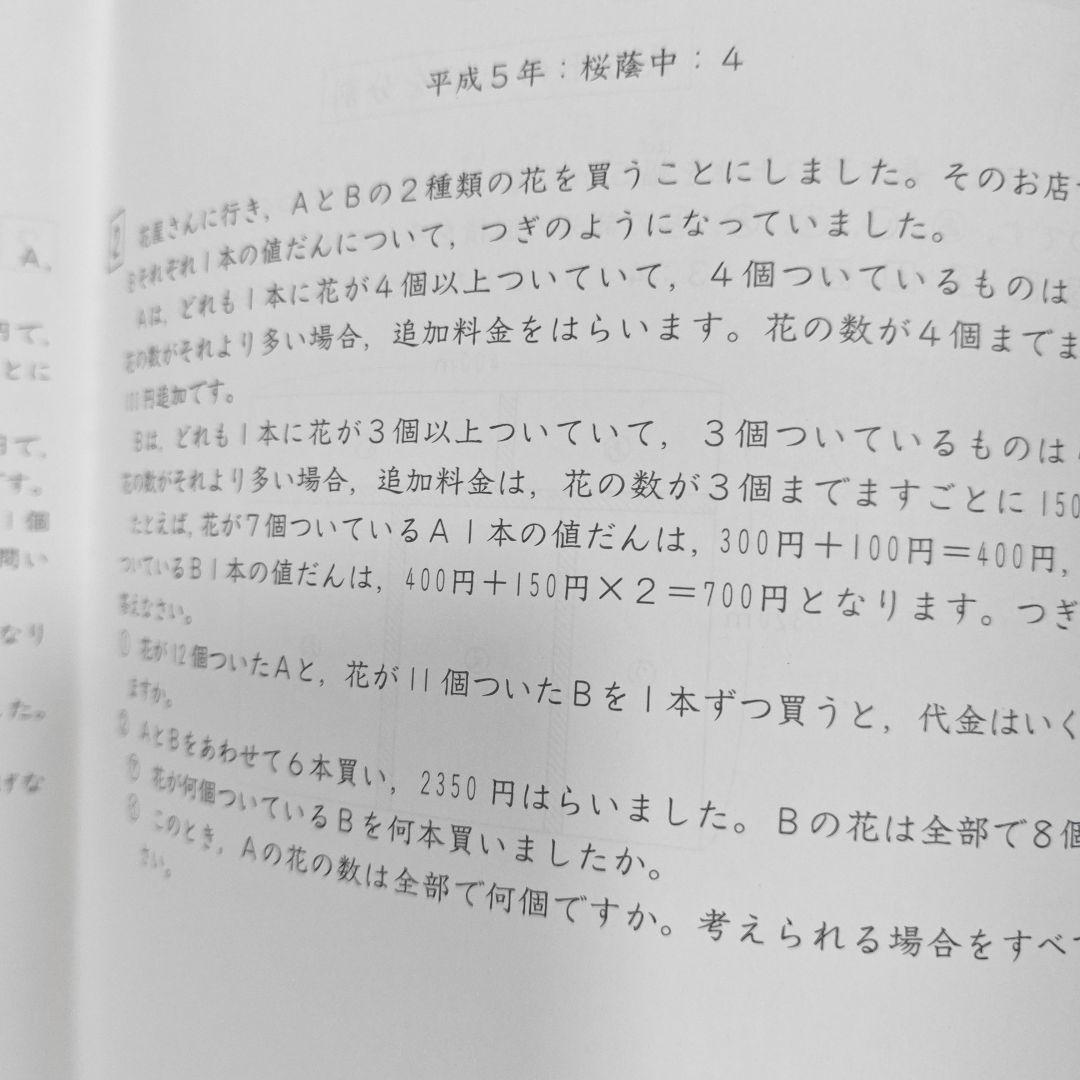 平成5年：桜蔭中：4
花屋さんに行き，AとBの2種類の花を買うことにしました。そのお店
それぞれ1本の値だんについて，つぎのようになっていました。
Aは，どれも1本に花が4個以上ついていて，4個ついているものは
花の数がそれより多い場合，追加料金をはらいます。花の数が4個までま
円追加です。
Bは，どれも1本に花が3個以上ついていて，3個ついているものは
花の数がそれより多い場合，追加料金は，花の数が3個までますごとに150
たとえば，花が7個ついているA1本の値だんは，300円＋100円＝400円，
ついているB1本の値だんは，400円＋150円×2＝700円となります。つぎ
答えなさい。
① 花が12個ついたAと，花が11個ついたBを1本ずつ買うと，代金はいく
ますか。
② AとBをあわせて6本買い，2350円はらいました。Bの花は全部で8個
㋐ 花が何個ついているBを何本買いましたか。
㋑ このとき，Aの花の数は全部で何個ですか。考えられる場合をすべ
さい。
A，
円て，
とに
円て，
です。
1個
問い
なり
した。
げな